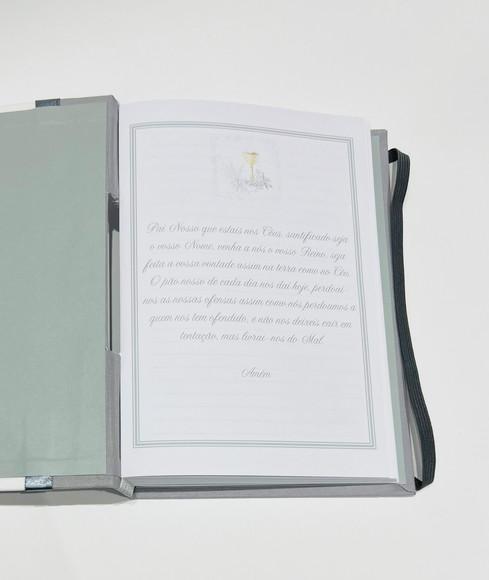 Pai Nosso que estais nos Céus, santificado seja
o vosso Nome, venha a nós o vosso Reino, seja
feita a vossa vontade assim na terra como no Céu.
O pão nosso de cada dia nos dai hoje, perdoai-
nos as nossas ofensas assim como nós perdoamos a
quem nos tem ofendido, e não nos deixeis cair em
tentação, mas livrai-nos do Mal.
Amém